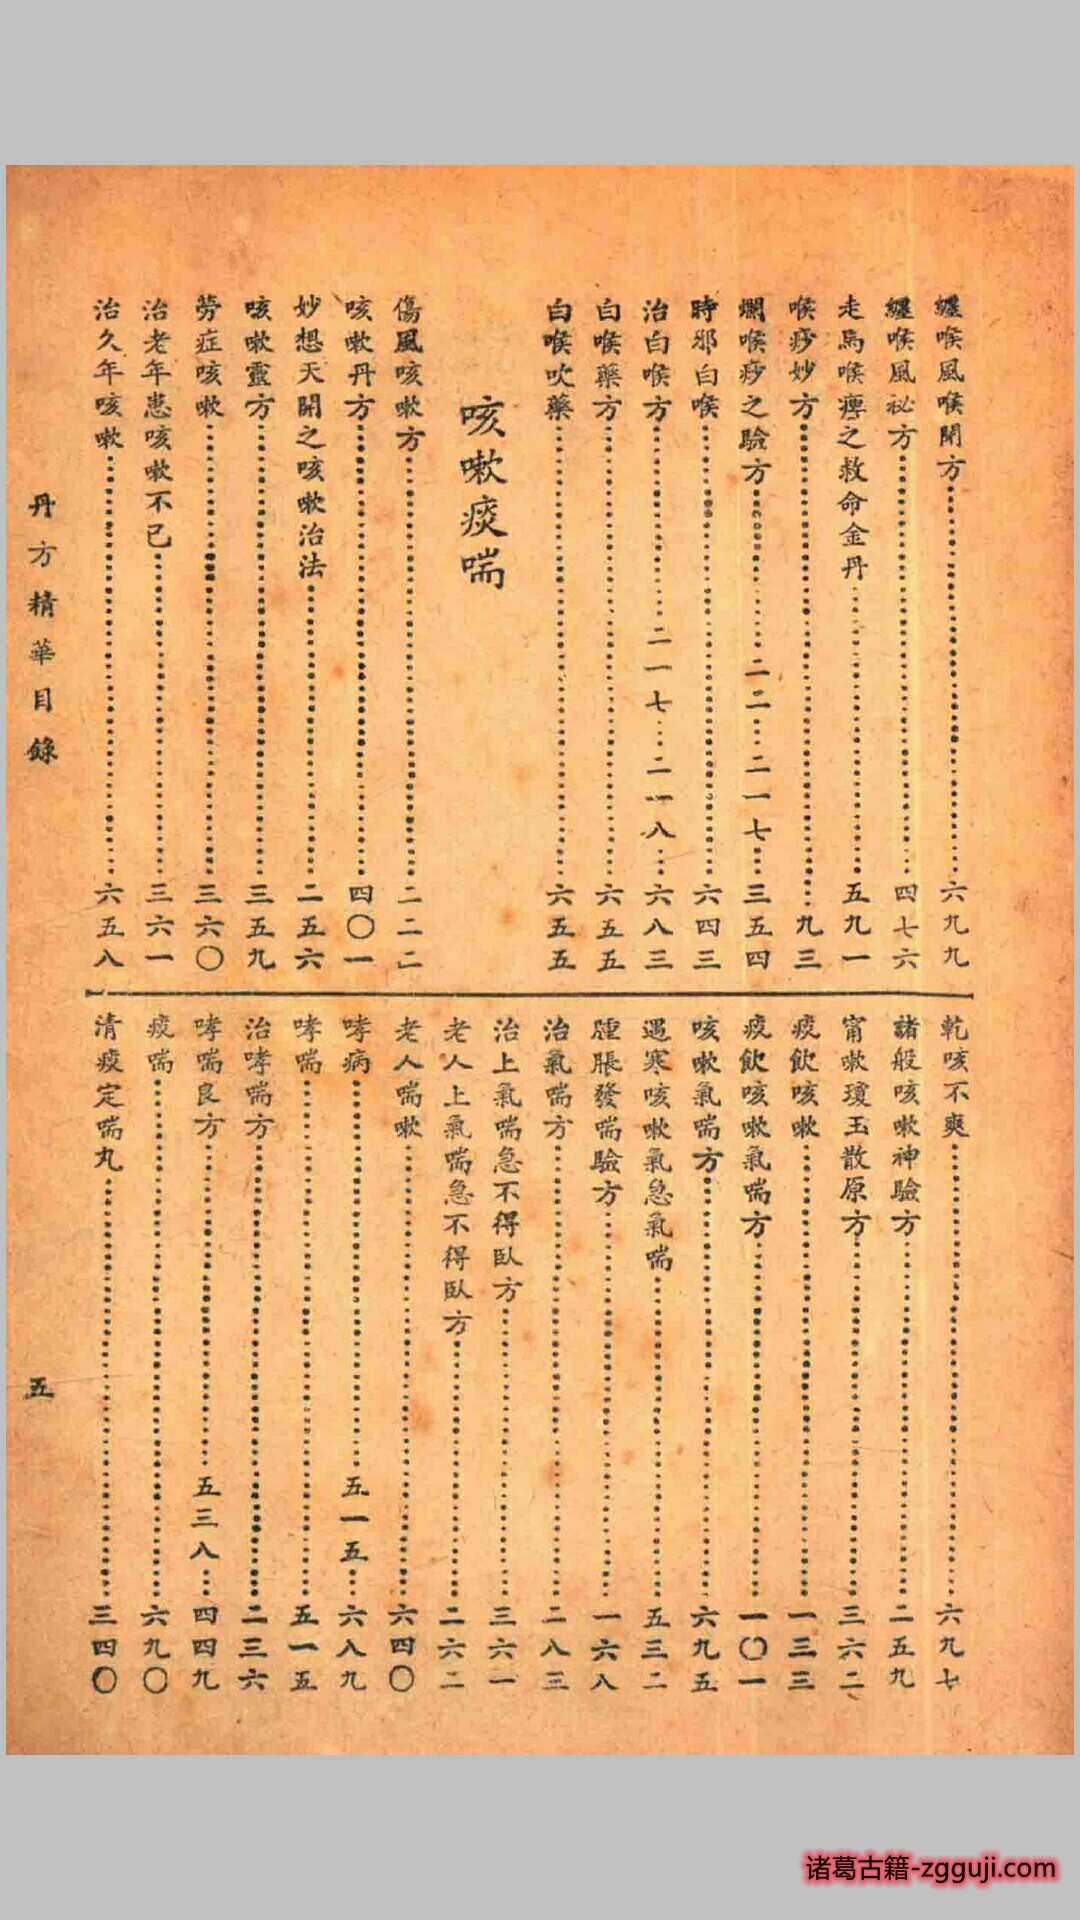 纏喉風喉閉方……六九九
纏喉風祕方……四七六
走馬喉痺之救命金丹……五九一
喉痧妙方……九三
爛喉痧之驗方……二二…二一七…三五四
時邪白喉……六四三
治白喉方……二一七…二一八…六八三
白喉藥方……六五五
白喉吹藥……六五五
咳嗽痰喘
傷風咳嗽方……二二二
咳嗽丹方……四〇一
妙想天開之咳嗽治法……二五六
咳嗽靈方……三五九
勞症咳嗽……三六〇
治老年患咳嗽不已……三六一
治久年咳嗽……六五八
乾咳不爽……六九七
諸般咳嗽神驗方……二五九
甯嗽瓊玉散原方……三六二
痰飲咳嗽……一三三
痰飲咳嗽氣喘方……一〇一
咳嗽氣喘方……六九五
遇寒咳嗽氣急氣喘……五三二
腫脹發喘驗方……一六八
治氣喘方……二八三
治上氣喘急不得臥方……三六一
老人上氣喘急不得臥方……二六二
老人喘嗽……六四〇
哮病……五一五…六八九
哮喘……五一五
治哮喘方……二三六
哮喘良方……五三八…四四九
痰喘……六九〇
清痰定喘丸……三四〇
丹方精華目錄
五
诸葛古籍-zgguji.com